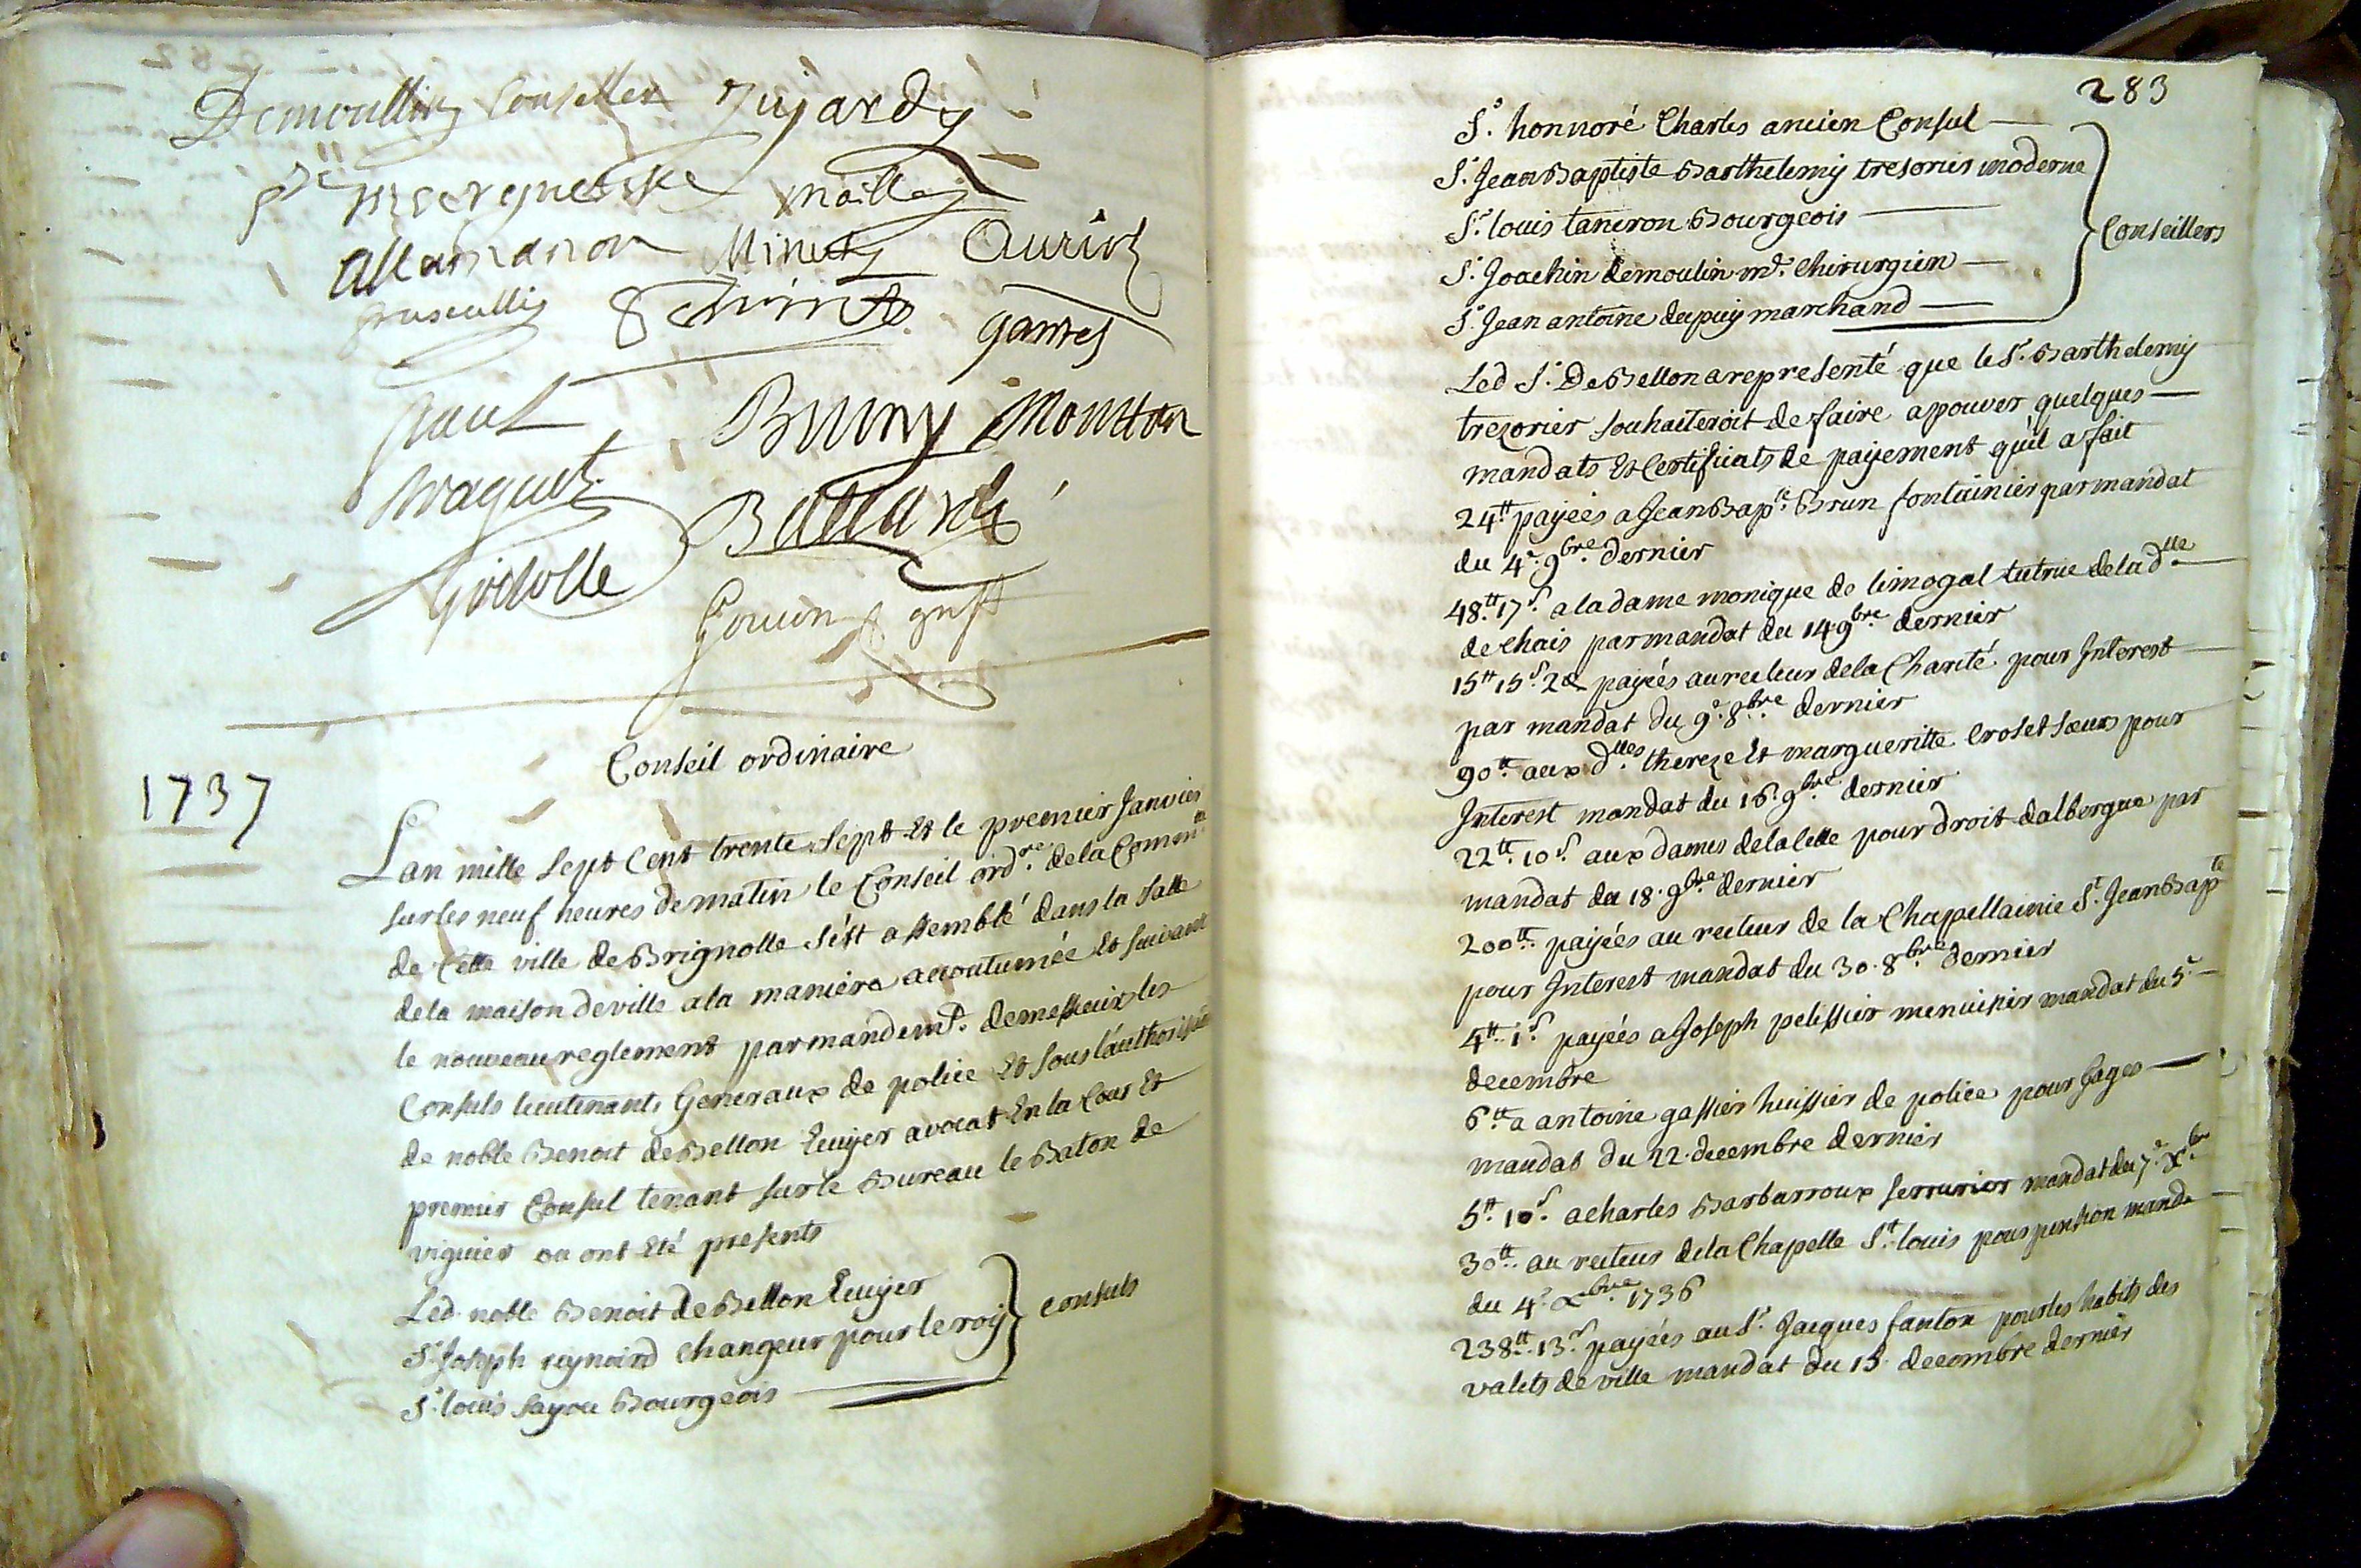 Demoullin Conseiller Jujardy
Maille
Allamanon Minuty Auriol
garres
paul Bruny Moutton
braquet
Gouin greff
Conseil ordinaire
1737
Lan mille sept Cent trente sept Et le premier Janvier
sur les neuf heures de matin le Conseil ord.re de la Comm.té
de Cette ville de Brignolle s'est assemblé dans la salle
de la maison de ville a la maniere accoutumée Et suivant
le nouveau reglement par mandem.t de messieurs les
Consuls lieutenants Generaux de police Et sous l'authorisation
de noble Benoit de Bellon Ecuyer avocat En la Cour Et
premier Consul tenant sur le Bureau le Baton de
viguier ou ont Eté presents
Led. noble Benoit de Bellon Ecuyer
S.r Joseph reynoird changeur pour le roy
S.r louis sayou Bourgeois
consuls
283
S.r honnoré Charles ancien Consul
S.r Jean Baptiste Barthelemy tresorier moderne
S.r louis taneron Bourgeois
S.r Joachin demoulin m.e chirurgien
S.r Jean antoine dupuy marchand
Conseillers
Led S.r De Bellon a representé que le S.r Barthelemy
trezorier souhaiteroit de faire apouver quelques
mandats Et Certificats de payement qu'il a fait
24.tt payées a Jean Bap.te Brun fontainier par mandat
du 4.e 9.bre dernier
48.tt 17.s a la dame monique de limogal tutrue de la d.lle
de chais par mandat du 14 9.bre dernier
15.tt 15.s 2d payées au recteur de la Charité pour Interest
par mandat du 9.e 8.bre dernier
90.tt aux d.lles thereze Et margueritte Croset sœurs pour
Interest mandat du 16. 9.bre dernier
22.tt 10.s aux dames de la Celle pour droit dalbergue par
mandat du 18. 9.bre dernier
200.tt payées au recteur de la Chapellainie S.t Jean Bap.te
pour Interest mandat du 30. 8.bre dernier
4.tt 1.s payées a Joseph pelissier menuisier mandat du 5.e
decembre
6.tt a antoine gassier huissier de police pour Gages
mandat du 22. decembre dernier
5.tt 10.s a charles Barbarroux serrurier mandat du 7.e x.bre
30.tt au recteur de la Chapelle S.t louis pour pension mand.
du 4.e x.bre 1736
238.tt 13.s payées au S.r Jacques fanton pour les habits des
valets de ville mandat du 15. decembre dernier